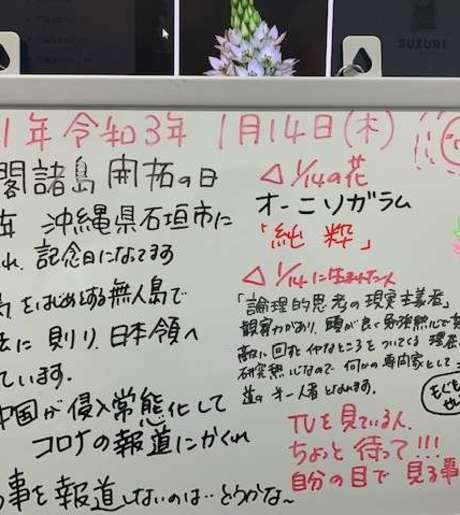 SUZURI
1年 令和3年 1月14日(木)
閣諸島開拓の日
年 沖縄県石垣市に
れ、記念日になってます
島をはじめとする無人島で
法に則り、日本領へ
ています。
中国が侵入常態化して
コロナの報道にかくれ
事を報道しないのは‥どうかな~
△1/14の花
オーニソガラム
「純粋」
△1/14に生まれた人
「論理的思考の現実主義者」
観察力があり、頭が良く勉強熱心で
敵に回すと
なところをついてくる
研究熱心なので、何かの専門家として
道の第一人者となれます。
TVを見ている人
ちょっと待って!!!
自分の目で見る事